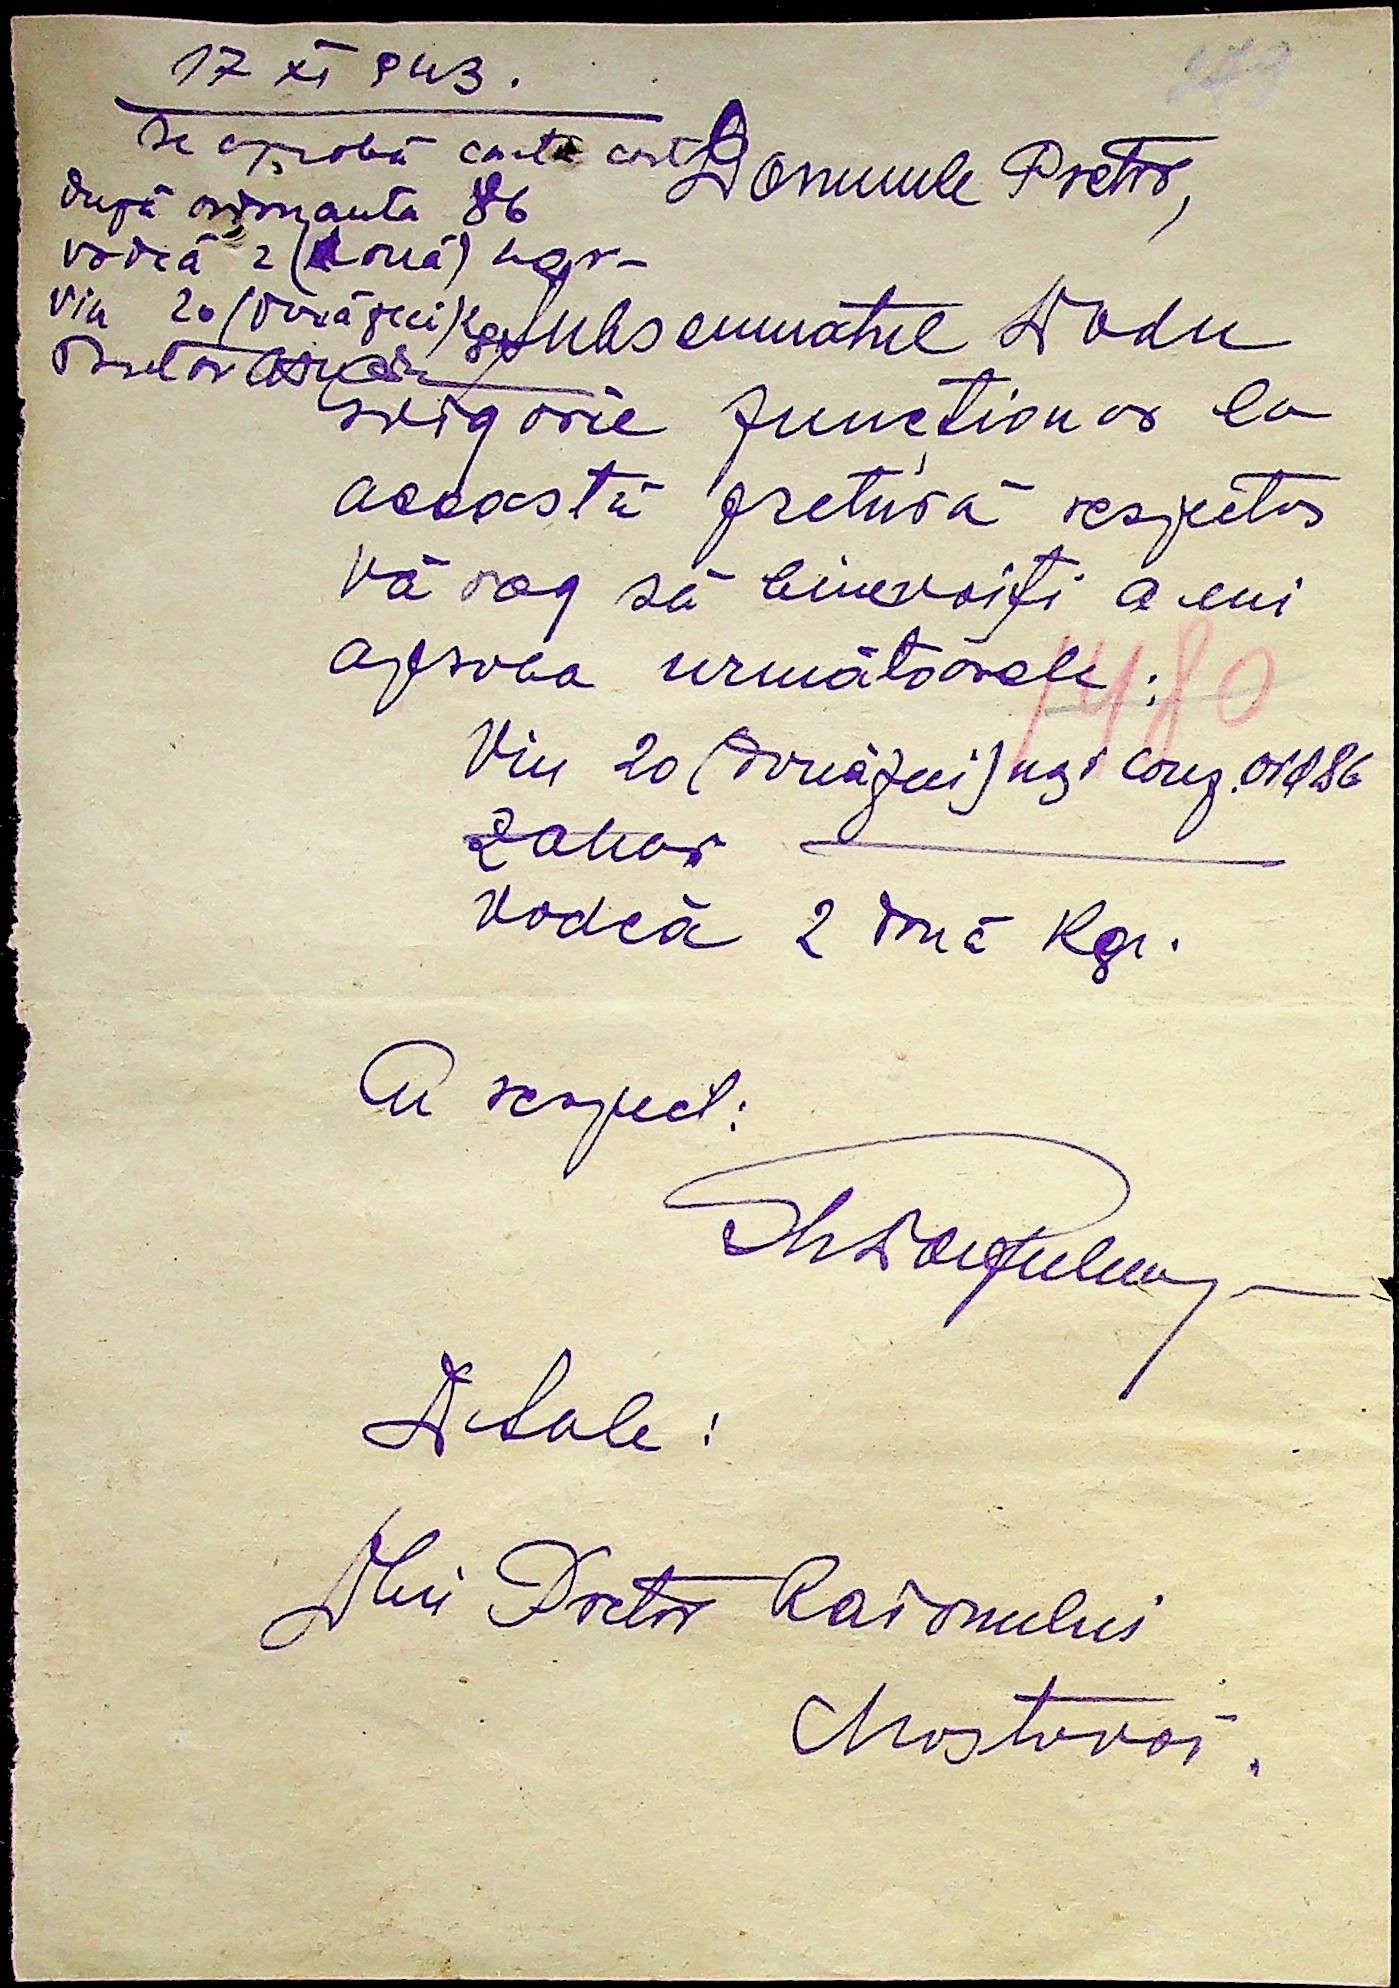 17 XI 943.
Se aprobă contra cost
după ordonanta 86
vodcă 2 (două) kgr-
vin 20 (douăzeci) kgr
Pretor
Domnule Pretor,
Subsemnatul Dodu
Grigorie funcționar la
această pretură respectos
vă rog să binevoiți a mi
aproba următoarele:
Vin 20 (douăzeci) kgr conf. ord 86
Zahar
Vodcă 2 două Kgr.
1480
Cu respect:
D-Sale:
Dlui Pretor Raionului
Mostovoi.